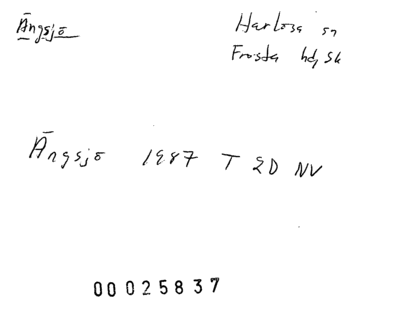 Ängsjö
Harlösa sn
Frosta hd, Sk
Ängsjö 1987 T 2D NV
00025837